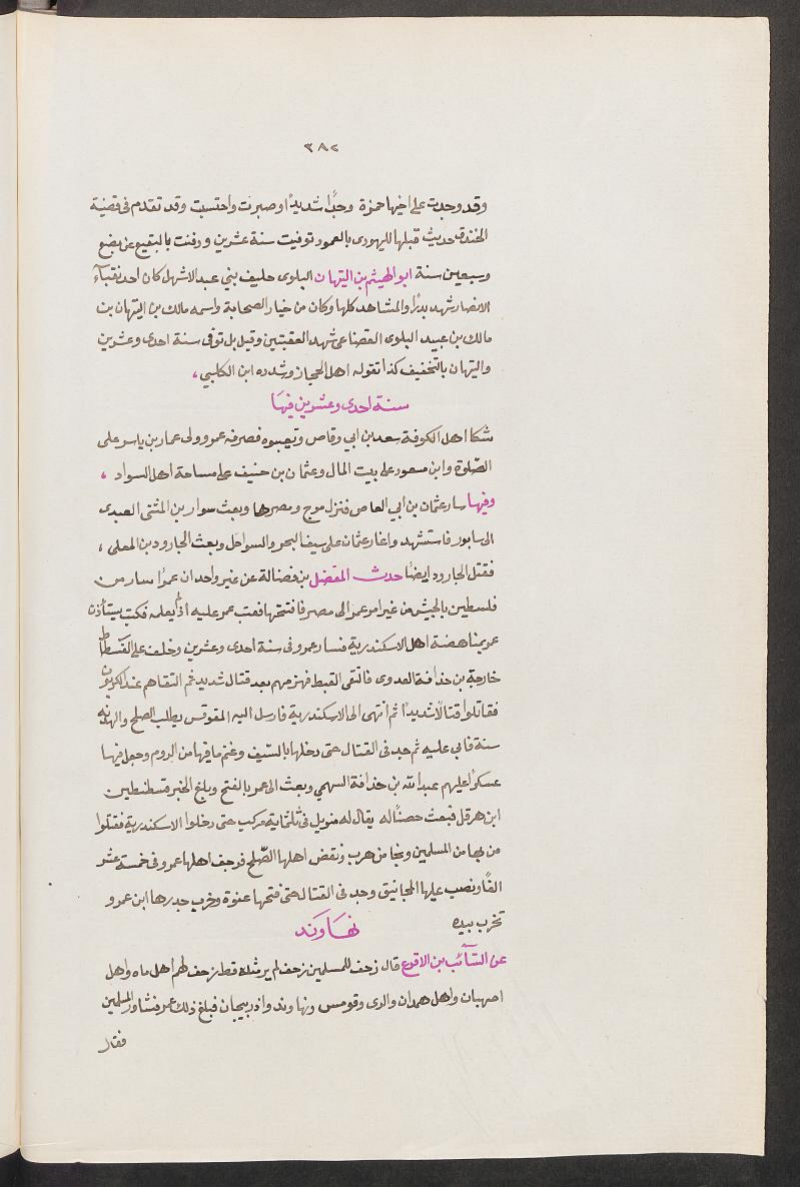 ٣٨٢
وقد وجدت على اخيها حمزة وجدًا شديدًا وصبرت واحتسبت وقد تقدم فى قضية
الخندق حديث قبلها لليهودى بالعمود توفيت سنة عشرين ودفنت بالبقيع عن بضع
وسبعين سنة ابو الهيثم بن التيهان البلوى حليف بني عبد الاشهل كان احد نقبآء
الانصار شهد بدرًا والمشاهد كلها وكان من خيار الصحابة واسمه مالك بن التيهان بن
مالك بن عبيد البلوى القضاعى شهد العقبتين وقيل بل توفى سنة احدى وعشرين
والتيهان بالتخفيف كذا تقوله اهل الحجاز وشدده ابن الكلبي ،
سنة احدى وعشرين فيها
شكا اهل الكوفة سعد بن ابي وقاص وتعبوه فصرفه عمر وولى عمار بن ياسر على
الصّلوة وابن مسعود على بيت المال وعثمان بن حنيف على مساحة اهل السواد ،
وفيها سار عثمان بن ابي العاص فنزل موج ومصرها وبعث سوار بن المثنى العبدى
الى سابور فاستشهد واغار عثمان على سيف البحر والسواحل وبعث الجارود بن المعلى ،
فقتل الجارود ايضا حدث المفضل بن فضالة عن غير واحد ان عمرًا سار من
فلسطين بالجيش من غير امر عمر الى مصر فافتتحها فعتب عمر عليه اذ لم يعلمه فكتب يستأذن
عمر بمناهضة اهل الاسكندرية فسار عمرو فى سنة احدى وعشرين وخلف على الفسطاط
خارجة بن حذافة العدوى فالتقى القبط فهزمهم بعد قتال شديد ثم التقاهم عند الكريون
فقاتلوا قتالًا شديدًا ثم انتهى الى الاسكندرية فارسل اليه المقوقس يطلب الصلح والهدنه
سنة فابى عليه ثم جد فى القتال حتى دخلها بالسّيف وغنم ما فيها من الروم وجعل فيها
عسكرًا عليهم عبد الله بن حذافة السهمي وبعث الى عمر بالفتح وبلغ الخبر قسطنطين
ابن هرقل فبعث حصنًا له يقال له منويل فى ثلثماية مركب حتى دخلوا الاسكندرية فقتلوا
من بها من المسلمين ونجا من هرب ونقض اهلها الصّلح فزحف اهلها عمرو فى خمسة عشر
الفًا ونصب عليها المجانيق وجد فى القتال حتى فتحها عنوة وخرب جدرها ابن عمرو
تخرب بيده
نهاوند
عن السّآئب بن الاقرع قال زحف للمسلمين زحف لم ير مثله قط زحف لهم اهل ماه واهل
اصبهان واهل همدان والرى وقومس ونهاوند واذربيجان فبلغ ذلك عمر فشاور المسلمين
فقال